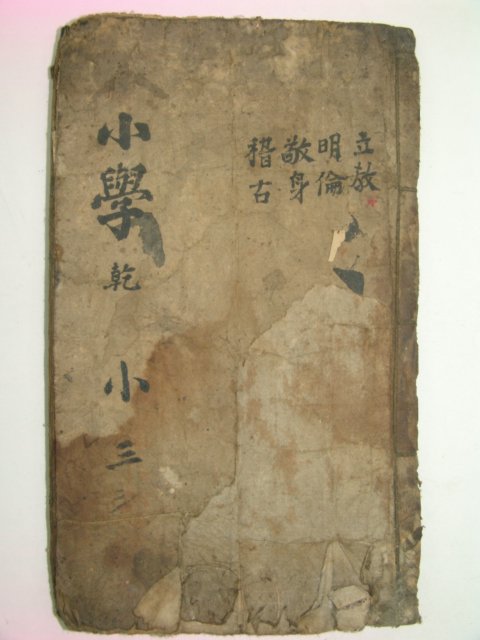 立教
明倫
敬身
稽古
小學 乾 小 三